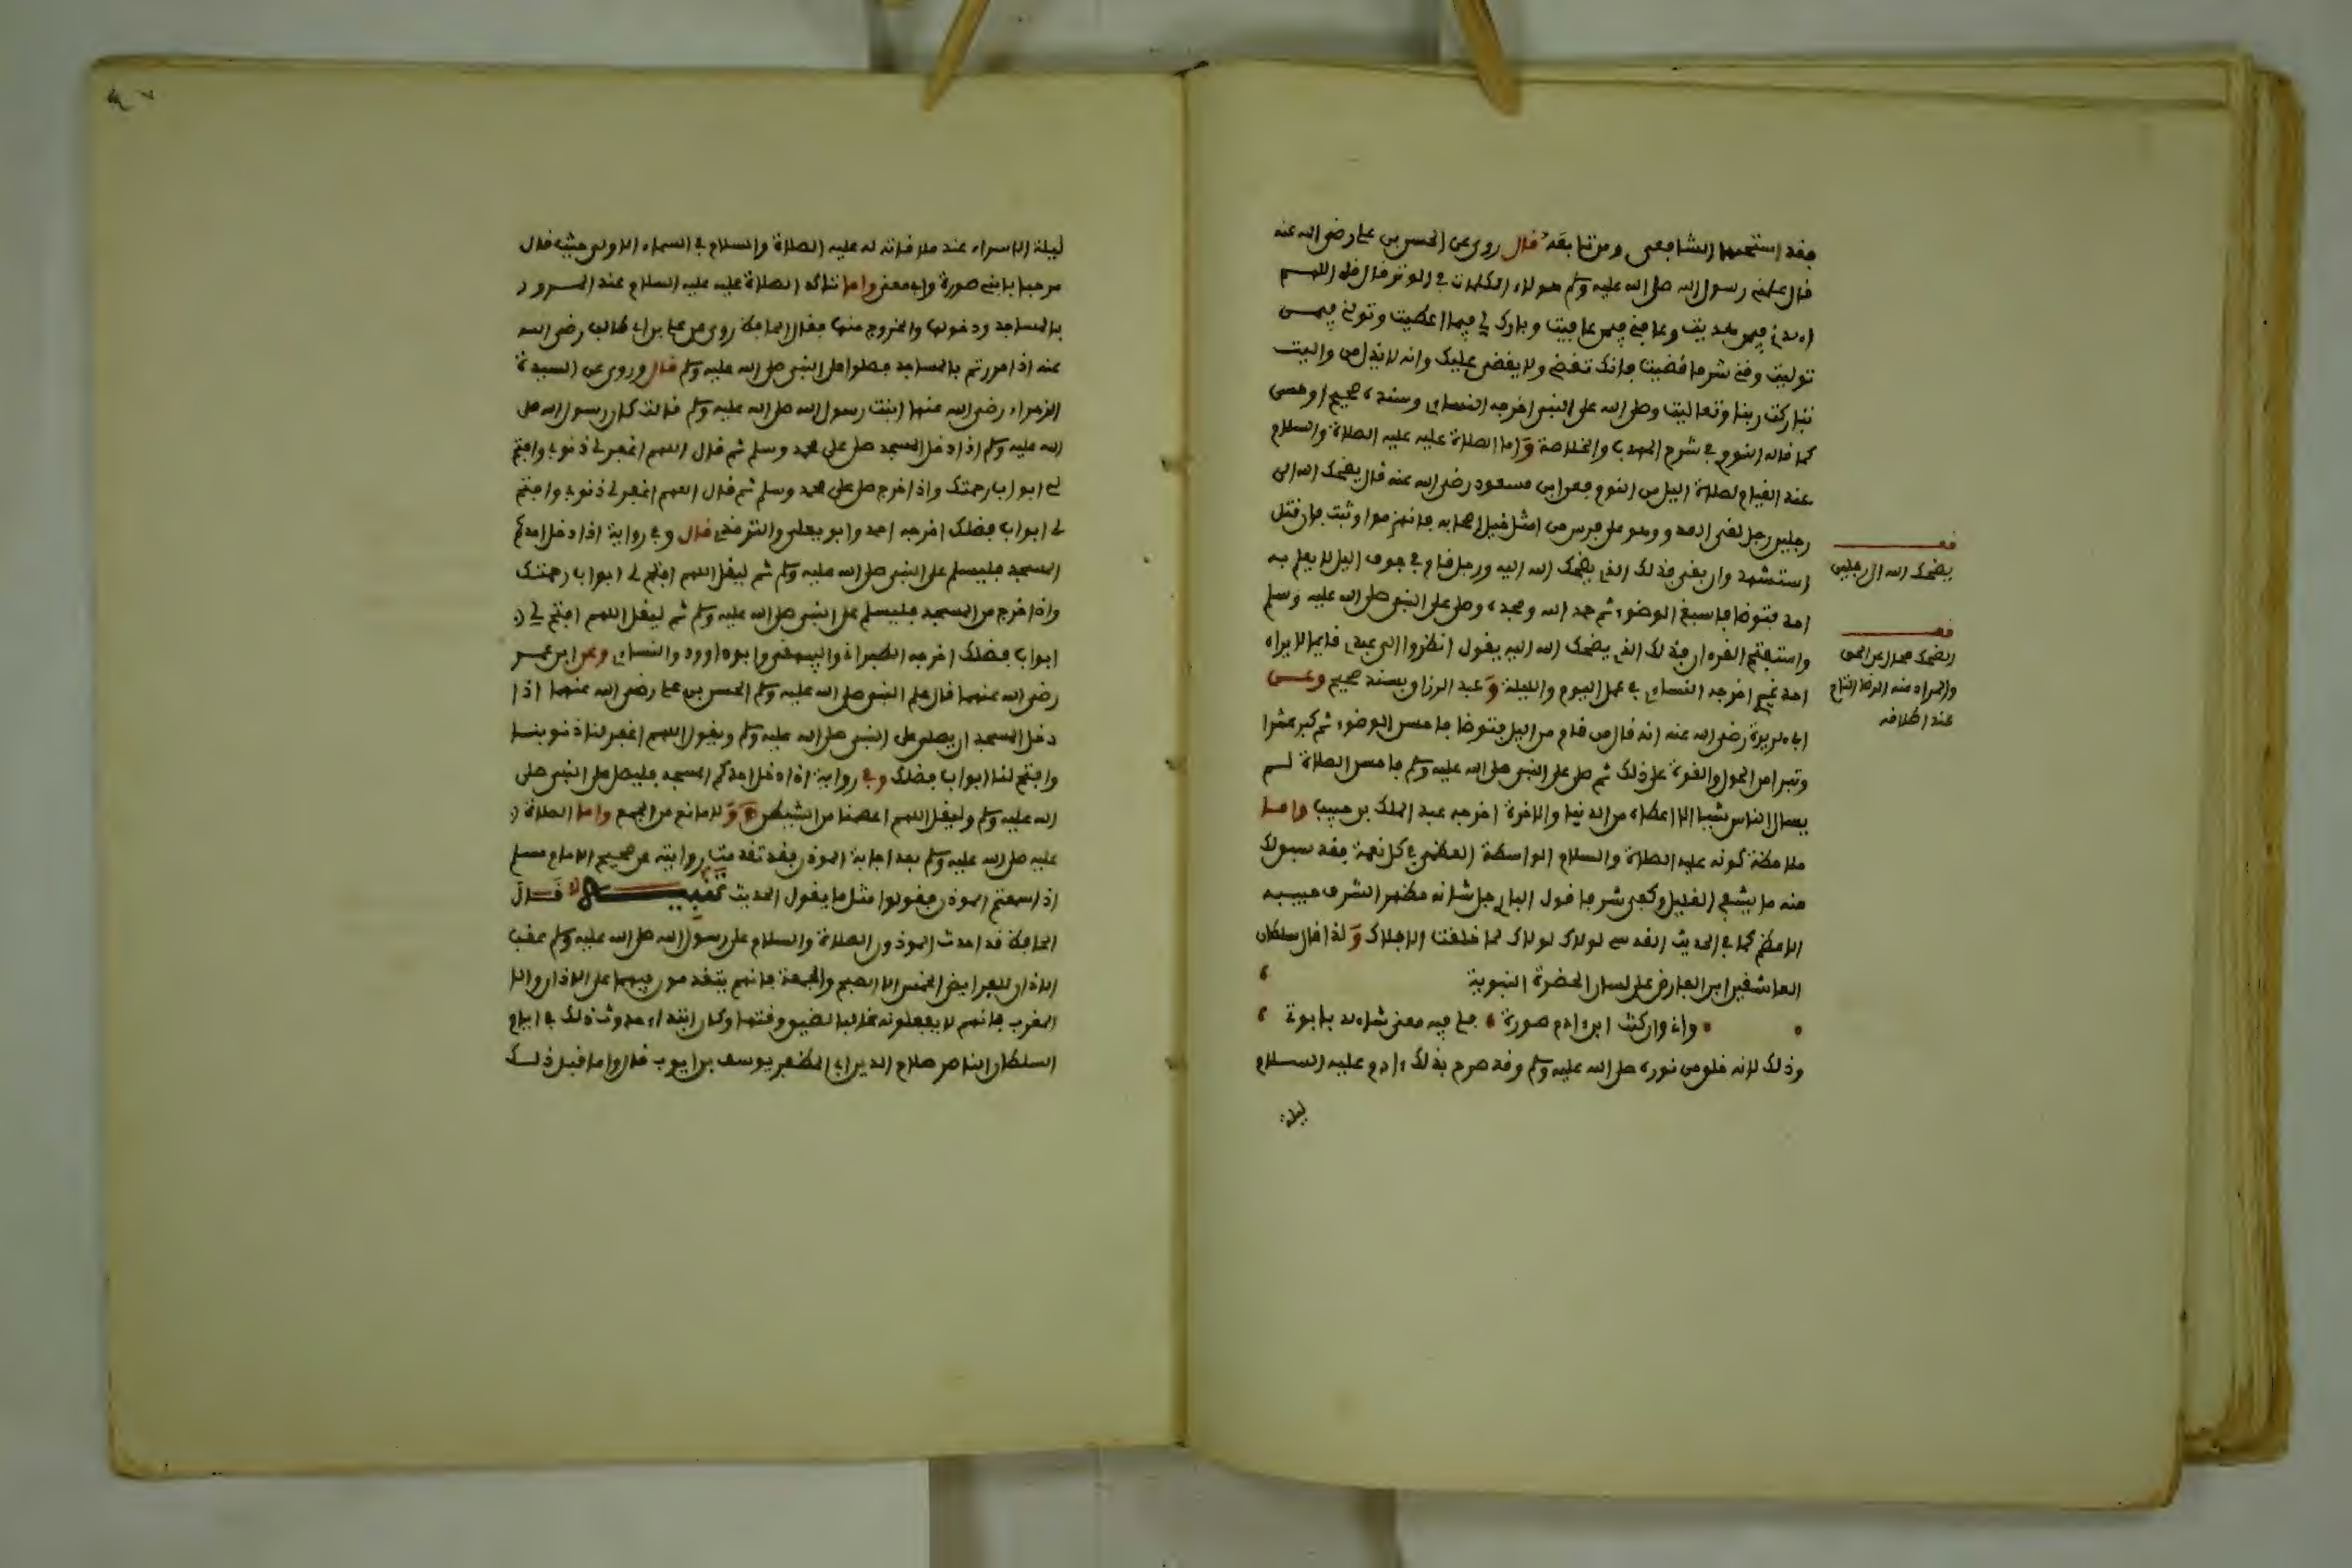 فقد استحبها الشافعي ومن تابعه قال روي عن الحسن بن علي رضي الله عنه
قال علمني رسول الله صلى الله عليه وسلم هولاء الكلمات في الوتر قال قل اللهم
اهدني فيمن هديت وعافني فيمن عافيت وبارك لي فيما اعطيت وتولني فيمن
توليت وقني شر ما قضيت فانك تقضي ولا يقضى عليك وانه لا يذل من واليت
تباركت ربنا وتعاليت وصلى الله على النبي اخرجه النسائي وسنده صحيح او حسن
كما قاله النووي في شرح المهذب والخلاصة واما الصلاة عليه عليه الصلاة والسلام
عند القيام لصلاة اليل من النوم فعن ابن مسعود رضي الله عنه قال يضحك الله الى
رجلين رجل لقي العدو وهو على فرس من امثل خيل اصحابه فانهزموا وثبت فان قتل
استشهد وان بقي فذلك الذي يضحك الله اليه ورجل قام في جوف اليل لا يعلم به
احد فتوضا فاسبغ الوضوء ثم حمد الله ومجده وصلى على النبي صلى الله عليه وسلم
واستفتح القرءان فذلك الذي يضحك الله اليه يقول انظروا الى عبدي قايما لا يراه
احد غيري اخرجه النسائي في عمل اليوم والليلة وعبد الرزاق بسند صحيح وعن
ابي هريرة رضي الله عنه انه قال من قام من اليل فتوضا فاحسن الوضوء ثم كبر عشرا
وتبرا من الحول والقوة على ذلك ثم صلى على النبي صلى الله عليه وسلم فاحسن الصلاة لم
يسال الناس شيئا الا اعطاه من الدنيا والاخرة اخرجه عبد الملك بن حبيب واما
ملاحظة كونه عليه الصلاة والسلام الواسطة العظمى في كل نعمة فقد سبق لك
منه ما يشفي الغليل وكفى شرفا قول الباري جل شانه مظهر الشرف حبيبه
الاعظم كما في الحديث القدسي لولاك لولاك لما خلقت الافلاك ولذا قال سلطان
العاشقين ابن الفارض على لسان الحضرة النبوية
واني وان كنت ابن ادم صورة فلي فيه معنى شاهد بابوة
وذلك لانه خلق من نوره صلى الله عليه وسلم وقد صرح بذلك ءادم عليه السلام
ليلة
قف
يضحك الله الى رجلين
قف
الضحك محال عن الحق
والمراد منه الرضا التام
عند اطلاقه
ليلة الاسراء عند ملاقاته له عليه الصلاة والسلام في السماء الاولى حيث قال
مرحبا بابني صورة وابي معنى واما تاكد الصلاة عليه عليه السلام عند المرور
بالمساجد ودخولها والخروج منها فقال الحافظ روي عن علي بن ابي طالب رضي الله
عنه اذا مررتم بالمساجد فصلوا على النبي صلى الله عليه وسلم قال وروي عن السيدة
الزهراء رضي الله عنها ابنت رسول الله صلى الله عليه وسلم قالت كان رسول الله صلى
الله عليه وسلم اذا دخل المسجد صلى على محمد وسلم ثم قال اللهم اغفر لي ذنوبي وافتح
لي ابواب رحمتك واذا خرج صلى على محمد وسلم ثم قال اللهم اغفر لي ذنوبي وافتح
لي ابواب فضلك اخرجه احمد وابو يعلى والترمذي قال وفي رواية اذا دخل احدكم
المسجد فليسلم على النبي صلى الله عليه وسلم ثم ليقل اللهم افتح لي ابواب رحمتك
واذا خرج من المسجد فليسلم على النبي صلى الله عليه وسلم ثم ليقل اللهم افتح لي
ابواب فضلك اخرجه الطبراني والبيهقي وابو داوود والنسائي وعن ابن عمر
رضي الله عنهما قال علم النبي صلى الله عليه وسلم الحسن بن علي رضي الله عنهما اذا
دخل المسجد ان يصلي على النبي صلى الله عليه وسلم ويقول اللهم اغفر لنا ذنوبنا
وافتح لنا ابواب فضلك وفي رواية اذا دخل احدكم المسجد فليصل على النبي صلى
الله عليه وسلم وليقل اللهم اعصمنا من الشيطن ولا مانع من الجمع واما الصلاة
عليه صلى الله عليه وسلم بعد اجابة الموذن فقد تقدمت روايته عن صحيح الامام مسلم
اذا سمعتم الموذن فقولوا مثل ما يقول الحديث قال
الحافظ قد احدث الموذنون الصلاة والسلام على رسول الله صلى الله عليه وسلم عقب
الاذان للفرايض الخمس الا الصبح والجمعة فانهم يقدمون فيهما على الاذان والا
المغرب فانهم لا يفعلونه غالبا لضيق وقتها وكان ابتداء حدوث ذلك في ايام
السلطان الناصر صلاح الدين ابي المظفر يوسف بن ايوب قال واما قبل ذلك